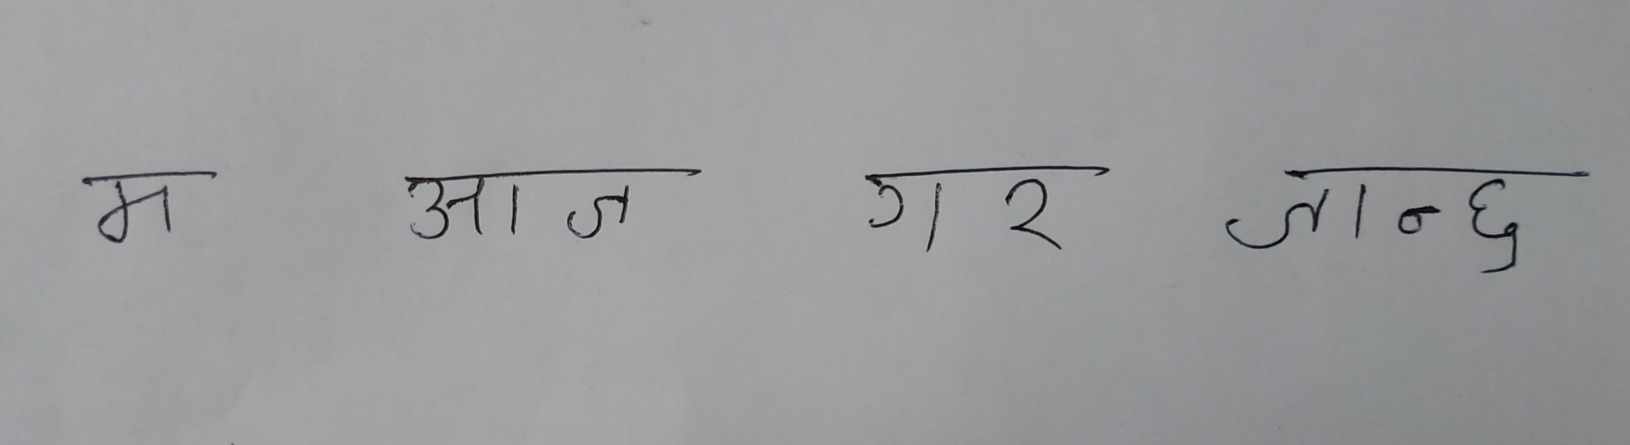 म आज गर जान्छु